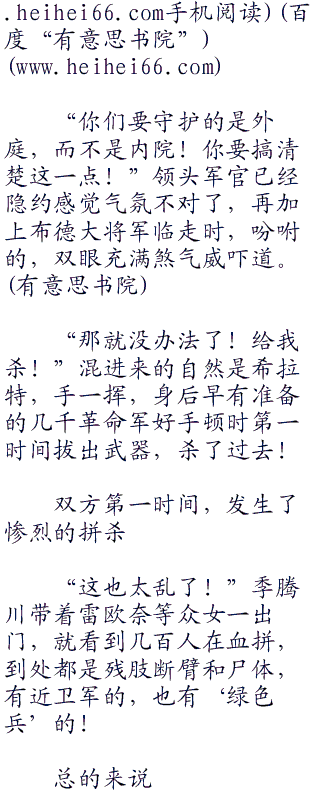 .heihei66.com手机阅读)(百
度“有意思书院”)
(www.heihei66.com)
“你们要守护的是外
庭，而不是内院！你要搞清
楚这一点！”领头军官已经
隐约感觉气氛不对了，再加
上布德大将军临走时，吩咐
的，双眼充满煞气威吓道。
(有意思书院)
“那就没办法了！给我
杀！”混进来的自然是希拉
特，手一挥，身后早有准备
的几千革命军好手顿时第一
时间拔出武器，杀了过去！
双方第一时间，发生了
惨烈的拼杀
“这也太乱了！”季腾
川带着雷欧奈等众女一出
门，就看到几百人在血拼，
到处都是残肢断臂和尸体，
有近卫军的，也有‘绿色
兵’的！
总的来说